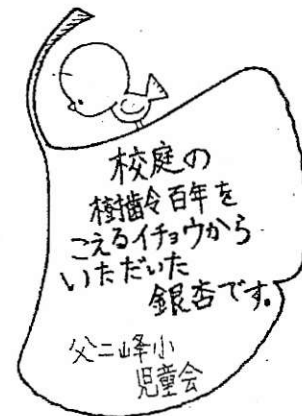 校庭の
樹齢百年を
こえるイチョウから
いただいた
銀杏です。
父二峰小
児童会